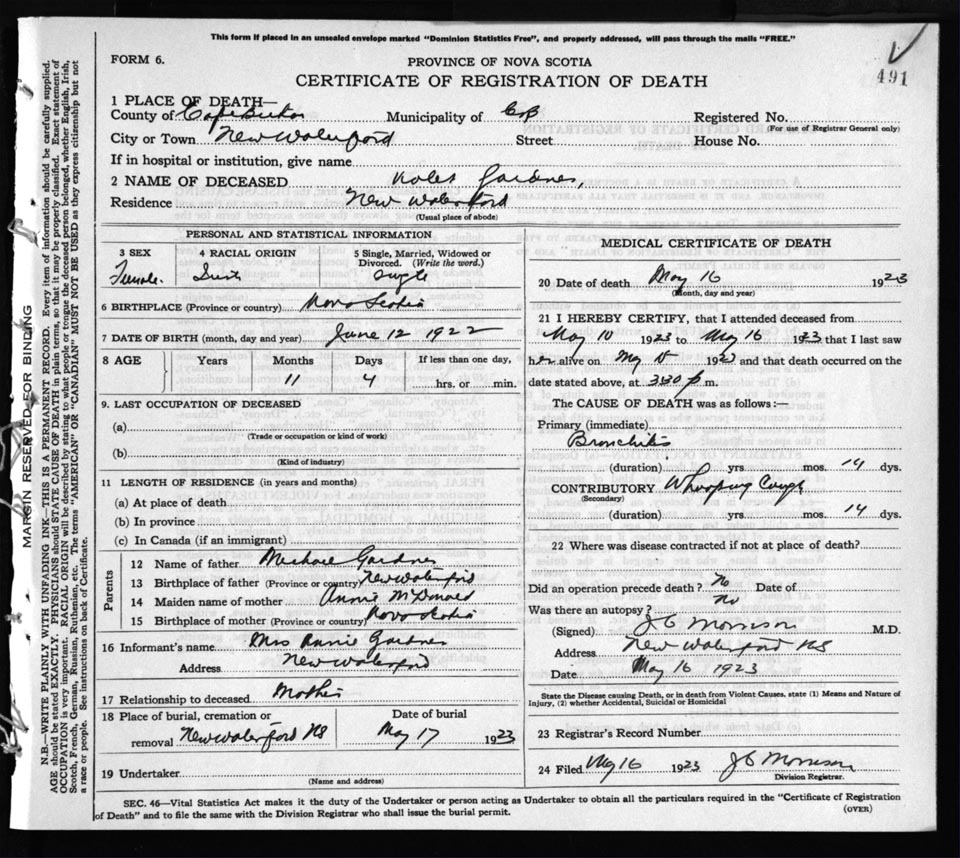 This form if placed in an unsealed envelope marked "Dominion Statistics Free", and properly addressed, will pass through the mails "FREE."
FORM 6.
PROVINCE OF NOVA SCOTIA
491
CERTIFICATE OF REGISTRATION OF DEATH
1 PLACE OF DEATH—
County of Cape Breton Municipality of CB Registered No.
(For use of Registrar General only)
City or Town New Waterford Street House No.
If in hospital or institution, give name
2 NAME OF DECEASED Gardner,
Residence New Waterford
(Usual place of abode)
PERSONAL AND STATISTICAL INFORMATION
3 SEX 4 RACIAL ORIGIN 5 Single, Married, Widowed or Divorced. (Write the word.)
Female. single
6 BIRTHPLACE (Province or country) Nova Scotia
7 DATE OF BIRTH (month, day and year) June 12 1922
8 AGE Years Months Days If less than one day,
11 4 hrs. or min.
9. LAST OCCUPATION OF DECEASED
(a)
(Trade or occupation or kind of work)
(b)
(Kind of industry)
11 LENGTH OF RESIDENCE (in years and months)
(a) At place of death
(b) In province
(c) In Canada (if an immigrant)
Parents
12 Name of father Michael Gardner
13 Birthplace of father (Province or country) New Waterford
14 Maiden name of mother Annie McDonald
15 Birthplace of mother (Province or country) Nova Scotia
16 Informant's name Mrs Annie Gardner
Address New Waterford
17 Relationship to deceased Mother
18 Place of burial, cremation or Date of burial
removal New Waterford NS May 17 1923
19 Undertaker
(Name and address)
MEDICAL CERTIFICATE OF DEATH
20 Date of death May 16 1923
(Month, day and year)
21 I HEREBY CERTIFY, that I attended deceased from
May 10 1923 to May 16 1923 that I last saw
her alive on May 1923 and that death occurred on the
date stated above, at 3.30 p. m.
The CAUSE OF DEATH was as follows:—
Primary (immediate)
Bronchitis
(duration) yrs. mos. 14 dys.
CONTRIBUTORY Whooping Cough
(Secondary)
(duration) yrs. mos. 14 dys.
22 Where was disease contracted if not at place of death?
Did an operation precede death? No Date of
Was there an autopsy? No
(Signed) J C Morrison M.D.
Address New Waterford NS
Date May 16 1923
State the Disease causing Death, or in death from Violent Causes, state (1) Means and Nature of
Injury, (2) whether Accidental, Suicidal or Homicidal
23 Registrar's Record Number
24 Filed May 16 1923 J C Morrison
Division Registrar.
SEC. 46—Vital Statistics Act makes it the duty of the Undertaker or person acting as Undertaker to obtain all the particulars required in the "Certificate of Registration
of Death" and to file the same with the Division Registrar who shall issue the burial permit.
(OVER)
MARGIN RESERVED FOR BINDING
N.B.—WRITE PLAINLY WITH UNFADING INK—THIS IS A PERMANENT RECORD. Every item of information should be carefully supplied.
AGE should be stated EXACTLY. PHYSICIANS should STATE CAUSE OF DEATH in plain terms, so that it may be properly classified. Exact statement of
OCCUPATION is very important. RACIAL ORIGIN will be described by stating to what people or tongue the deceased person belonged, whether English, Irish,
Scotch, French, German, Russian, Ruthenian, etc. The terms "AMERICAN" OR "CANADIAN" MUST NOT BE USED as they express citizenship but not
a race or people. See instructions on back of Certificate.